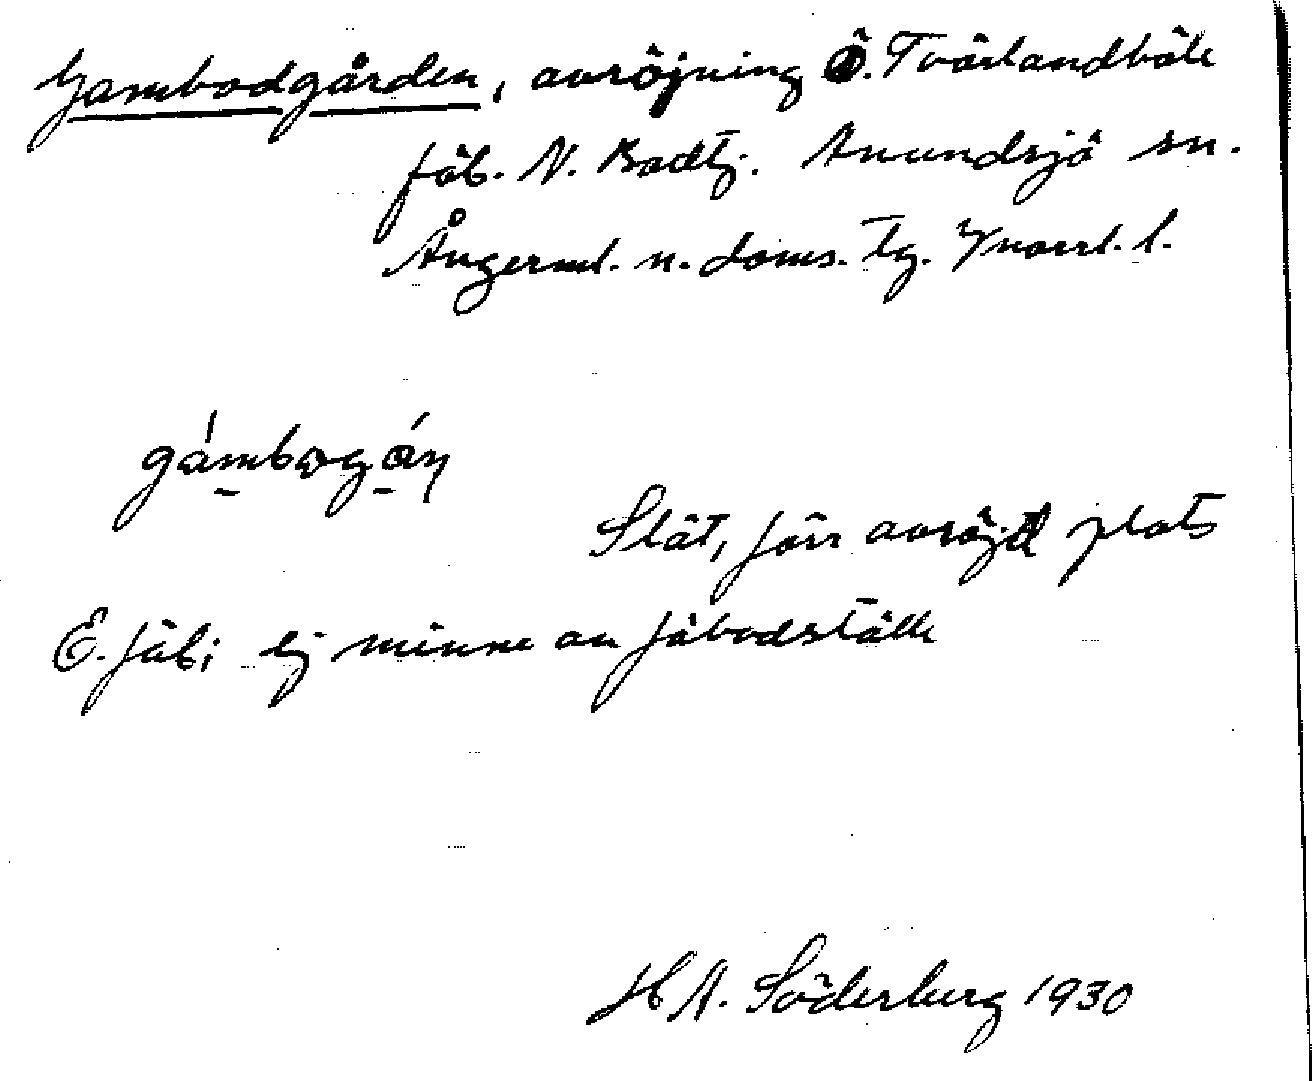 Gambodgården, avröjning Ö. Tvärlandböle
fäb. N. Bodtj. Anundsjö sn.
Ångerml. n. doms. tg. Ynorrl. l.
gámbogán
Slät, förr avröjd plats
E. fäb; ej minne av fäbodställe
H A. Söderberg 1930